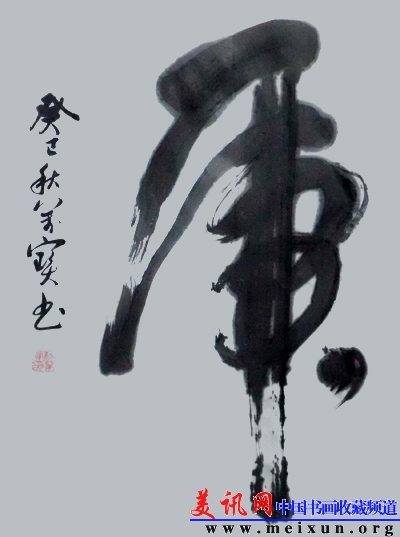 虎
癸巳秋萬寶书
美讯网 中国书画收藏频道
www.meixun.org